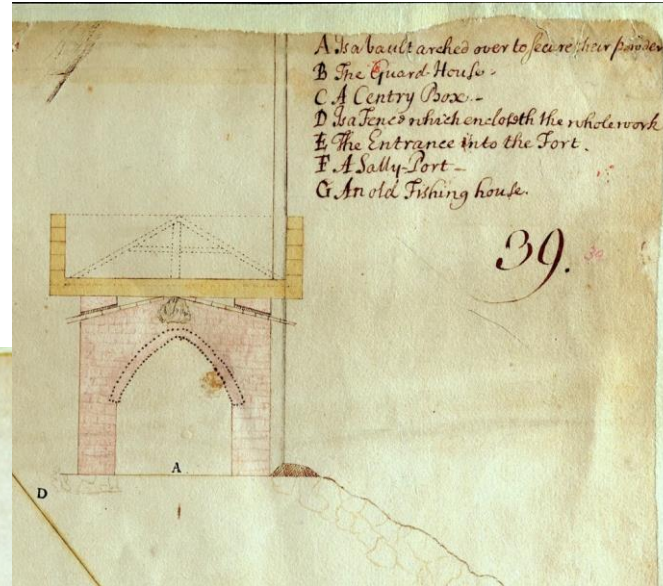 A Is a vault arched over to secure their powder
B The Guard-House -
C A Centry Box. -
D Is a Fence which encloseth the whole work
E The Entrance into the Fort.
F A Sally-Port -
G An old Fishing house.
39. 39
A
D